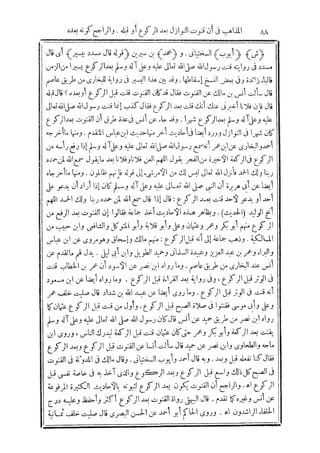 ٨٨ المذاهب فى أن قنوت النوازل بعد الركوع أو قبله . والراجح كونه بعده
﴿ش﴾ ﴿أيوب﴾ السختيانى . و ﴿محمد﴾ بن سيرين ﴿قوله قال مسدد بيسير﴾ أى قال
مسدد فى روايته قنت رسول الله صلى الله تعالى عليه وعلى آله وسلم بعد الركوع يسيرا من الزمن
أنس بن مالك عن القنوت فقال قد كان القنوت قلت قبل الركوع أو بعده ؟ قال قبله
قال فإن فلانا أخبرنى عنك أنك قلت بعد الركوع فقال كذب إنما قنت رسول الله صلى الله تعالى
عليه وعلى آله وسلم بعد الركوع شهرا . وقد جاء عن أنس من عدة طرق أن القنوت بعد الركوع
كان شهرا فى النوازل وورد أيضا فى أحاديث أخر منها حديث ابن عباس المتقدم . ومنها ما أخرجه
أحمد والبخارى عن ابن عمر أنه سمع رسول الله صلى الله تعالى عليه وعلى آله وسلم إذا رفع رأسه من
الركوع فى الركعة الأخيرة من الفجر يقول اللهم العن فلانا وفلانا بعد ما يقول سمع الله لمن حمده
ربنا ولك الحمد فأنزل الله تعالى ليس لك من الأمر شىء إلى قوله فإنهم ظالمون . ومنها ما أخرجاه
أيضا عن أبى هريرة أن النبى صلى الله تعالى عليه وعلى آله وسلم كان إذا أراد أن يدعو على
أحد أو يدعو لأحد قنت بعد الركوع : قال إذا قال سمع الله لمن حمده ربنا ولك الحمد اللهم
أنج الوليد ﴿الحديث﴾ . وبظاهر هذه الأحاديث أخذ جماعة فقالوا إن القنوت بعد الرفع من
الركوع منهم أبو بكر وعمر وعثمان وعلى وأبو قلابة وأبو المتوكل والشافعى وابن حبيب من
المالكية . وذهب جماعة إلى أنه قبل الركوع : منهم مالك وإسحاق وهو مروى عن ابن عباس
والبراء وعمر بن عبد العزيز وعبيدة السلمانى وحميد الطويل وابن أبى ليلى . يدل لهم ما تقدم عن
أنس عند البخارى من طريق عاصم . وما رواه ابن نصر عن الأسود أن عمر بن الخطاب قنت
فى الوتر قبل الركوع . وفى رواية بعد القراءة قبل الركوع . وما رواه أيضا عن ابن مسعود
أنه قنت فى الوتر قبل الركوع . وما روى أيضا عن عبد الله بن شداد قال صليت خلف عمر
وعلى وأبى موسى فقنتوا فى صلاة الصبح قبل الركوع . وأول من قنت قبل الركوع عثمان لما
رواه ابن نصر من طريق حميد عن أنس قال كان رسول الله صلى الله تعالى عليه وعلى آله وسلم
يقنت بعد الركعة وأبو بكر وعمر حتى كان عثمان قنت قبل الركعة ليدرك الناس . وروى ابن
ماجه والطحاوى وابن نصر عن حميد قال سألت أنسا عن القنوت قبل الركوع وبعد الركوع
فقال كنا نفعله قبل وبعد . وبه قال أحمد وأيوب السختيانى . وقال مالك فى المدونة فى القنوت
فى الصبح كل ذلك واسع قبل الركوع وبعد الركوع والذى آخذ به فى خاصة نفسى قبل
الركوع اه . والراجح أن القنوت يكون بعد الركوع لثبوته بالأحاديث الكثيرة المرفوعة
عن أنس وغيره كما تقدم . قال البيهقى رواة القنوت بعد الركوع أكثر وأحفظ وعليه درج
الخلفاء الراشدون اه . وروى الحاكم أبو أحمد عن الحسن البصرى قال صليت خلف ثمانية